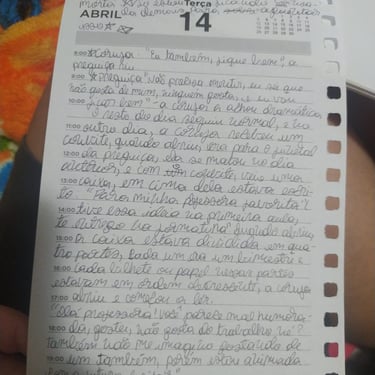 ABRIL
Terça
14
8:00 ☆Coruja: "Eu também, fique bem", a
preguiça riu
9:00 ☆Preguiça: "Não precisa mentir, eu sei que
não gosta de mim, ninguém gosta. e eu vou
10:00 ficar bem" - a coruja a achou dramática
e neste dia seguiu normal, e no
11:00 outro dia, a coruja recebeu um
convite, quando abriu, era para o funeral
12:00 da preguiça, ela se matou no dia
anterior, e com convite, veio uma
13:00 caixa, em cima dela estava escri-
to "Para minha professora favorita!
14:00 tive essa ideia na primeira aula,
te entrego na formatura" quando abriu,
15:00 a caixa estava dividida em qua-
tro partes, cada um era um bimestre e
16:00 cada bilhete ou papel nessas partes
estavam em ordem decrescente, a coruja
17:00 abriu e começou a ler.
"Olá professora! Você parece mal humora-
18:00 da, gostei, não gosta do trabalho, né?
também não me imagino gostando de
19:00 um também, porém estou animada